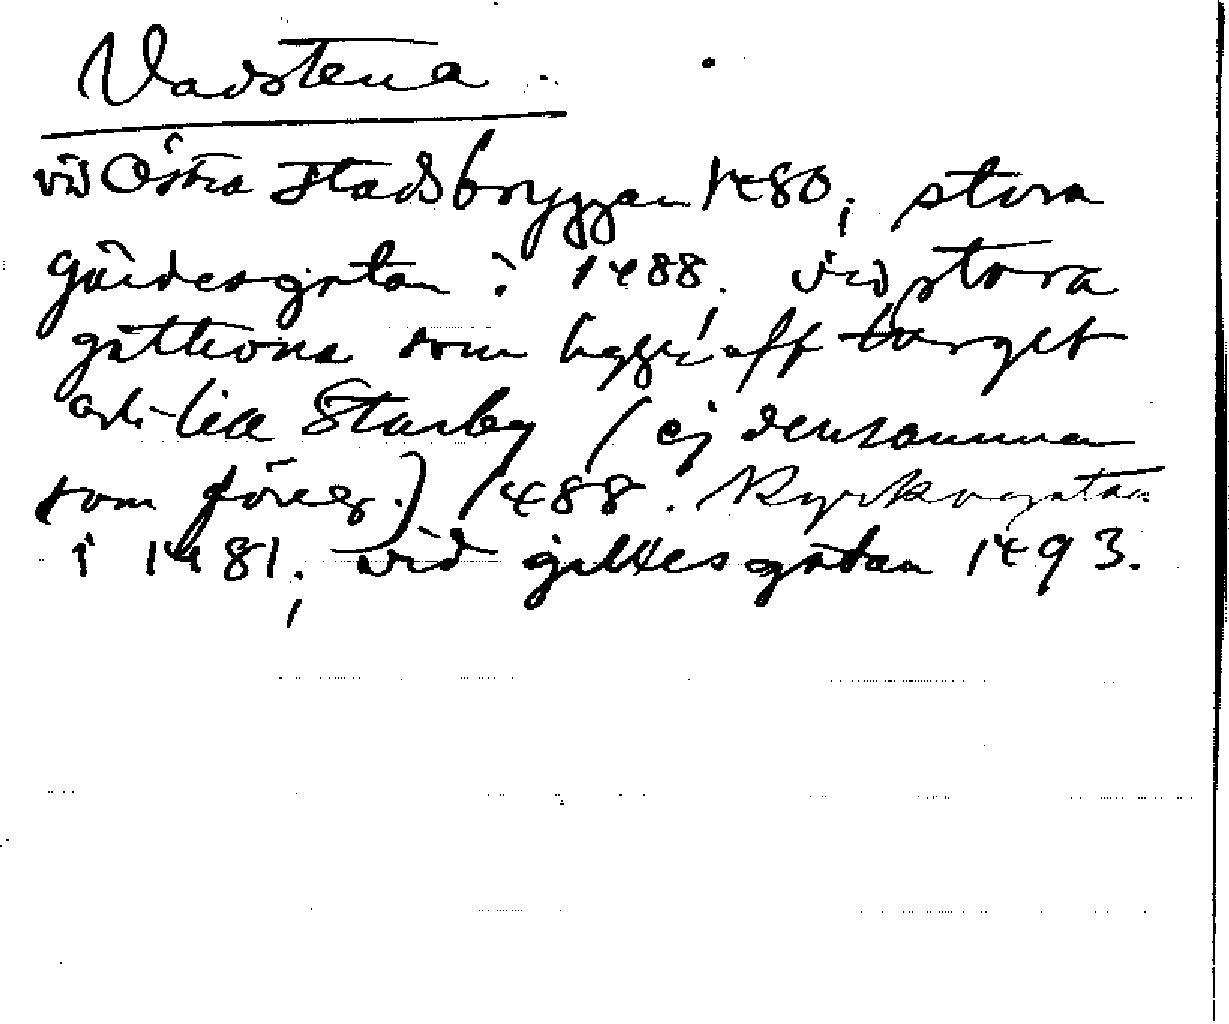 Vadstena
vid Östra Stadsbryggan 1480; stora
gärdesgatan i 1488. vid stora
gathona som ligger aff torget
och till Starby (ej densamma
som föreg.) 1488. Kyrkogatan
i 1481; vid gilles gatan 1493.